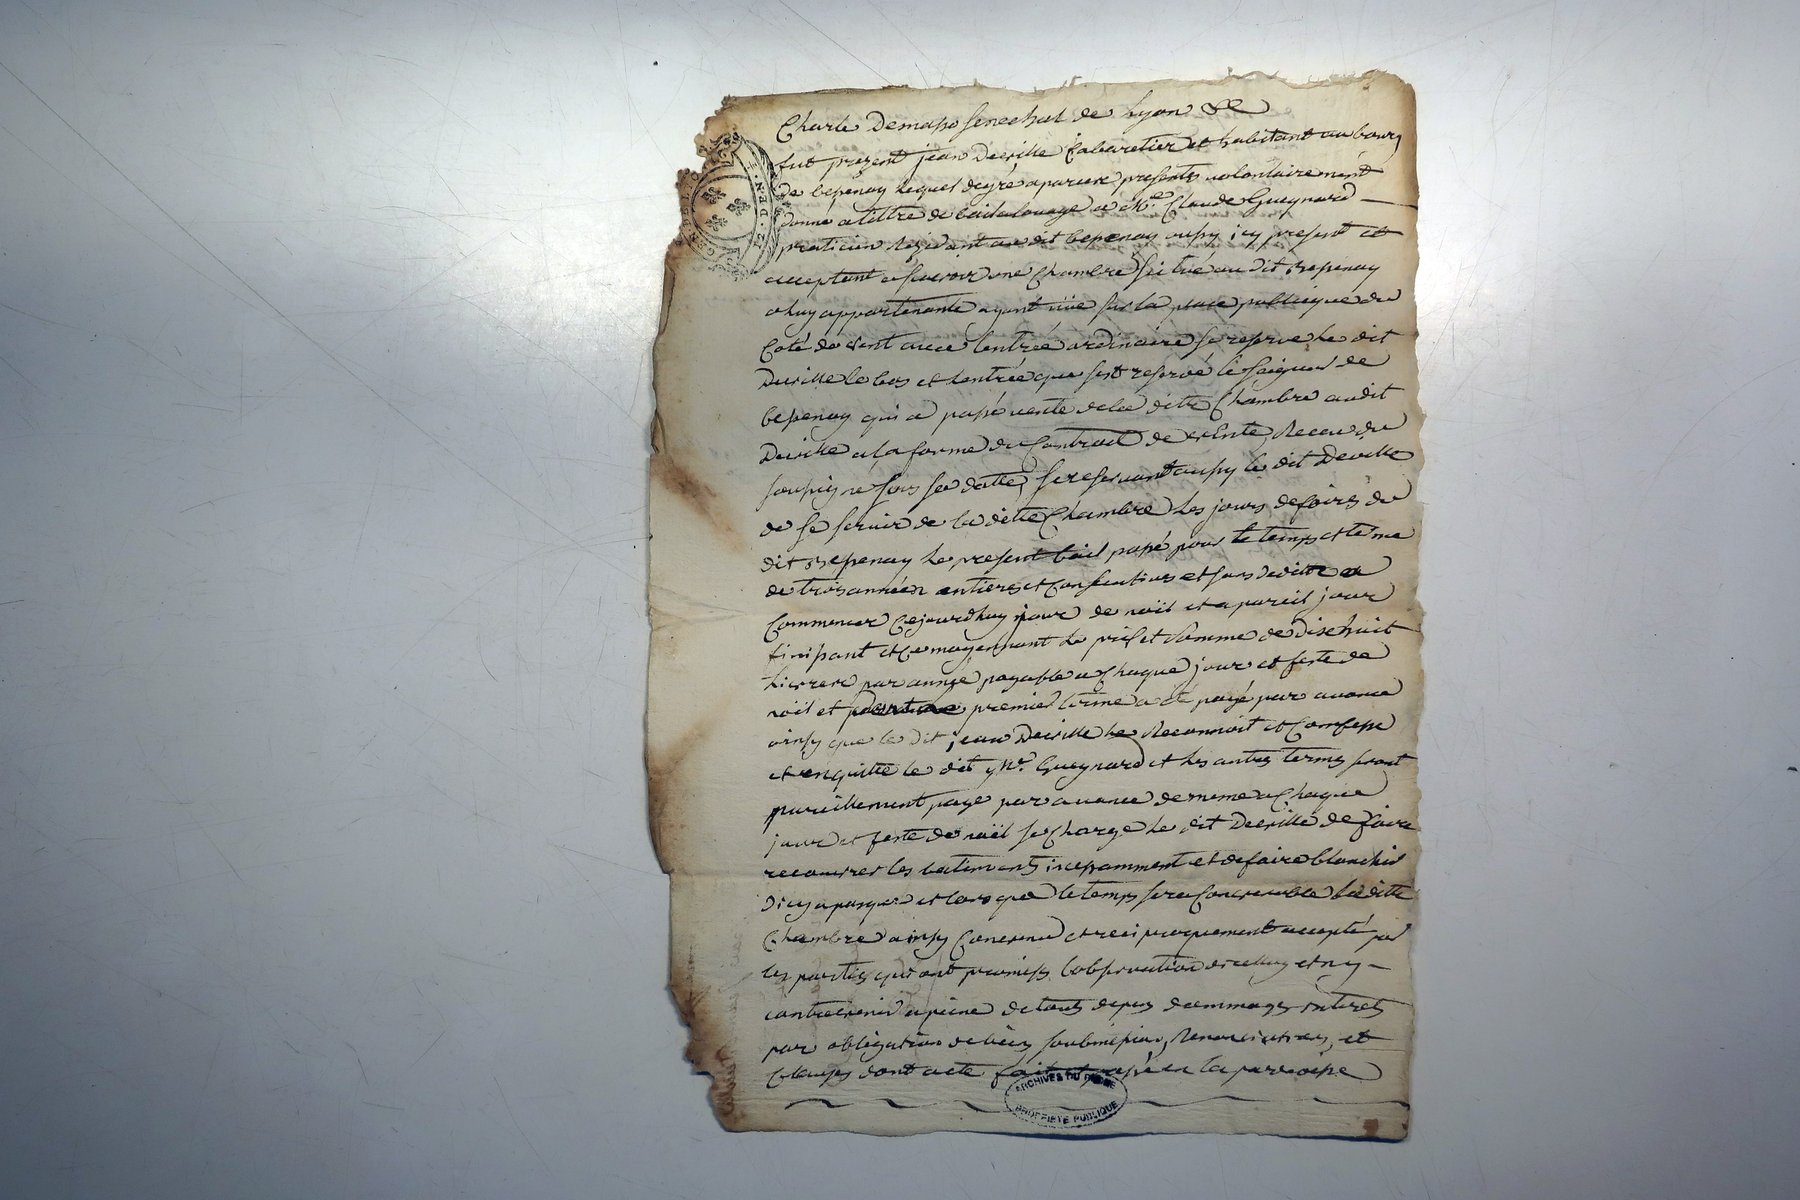 Charle Demaso senechal de Lyon &c
fut present jean Deville Cabaretier et habitant au bourg
de bessenay lequel de gré a parure presente volontairement
donne a tittre de bail a louage a Me Claude Gueynard
praticien residant au dit bessenay aussy icy present et
acceptant a scavoir une Chambre scitué au dit Bessenay
a luy appartenante ayant vüe sur la place publicque du
Coté de vent avec lentrée ordinaire se reserve le dit
Deville le bas et lentrée que sest reservé le seigneur de
bessenay qui a passé vente de la ditte Chambre audit
Deville a la forme du Contrat de vente Receu du
soussigné sous sa datte, se reservant aussy le dit Deville
de se servir de la ditte Chambre les jours de foires du
dit Bessenay le present bail passé pour le temps et terme
de trois années entieres et Consecutives et sans deditte a
Commencer Cejourdhuy jour de noël et a pareil jour
finissant et ce moyennant le prix et somme de dixhuit
livres par année payable a Chaque jour et feste de
noël et premier terme a eté payé par avance
ainsy que le dit jean Deville le Reconnoit et Confesse
et en quitte le dit Mr. Gueynard et les autres termes seront
pareillement payé par avance de meme a Chaque
jour et feste de noël se Charge le dit Deville de faire
recouvrer les batiments incessamment et de faire blanchir
dicy a paques et lors que le temps sera Convenable la ditte
Chambre ainsy Convenu et reciproquement accepté par
les parties qui ont promis lobservation dicelluy et ny
contrevenir a peine de tous depens dommages interets
par obligation de biens soubmission, Renonciations, et
Clauses dont acte fait et passé en la paroisse
GEN. DE LYO
ARCHIVES DU RHONE
PROPRIETE PUBLIQUE